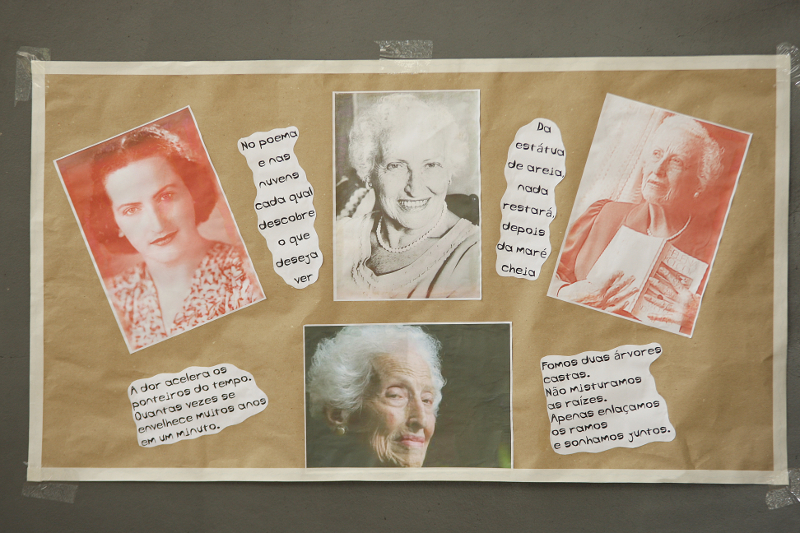 No poema
e nas
nuvens
cada qual
descobre
o que
deseja
ver
Da
estátua
de areia,
nada
restará,
depois
da maré
cheia
A dor acelera os
ponteiros do tempo.
Quantas vezes se
envelhece muitos anos
em um minuto.
Fomos duas árvores
castas.
Não misturamos
as raízes.
Apenas enlaçamos
os ramos
e sonhamos juntos.